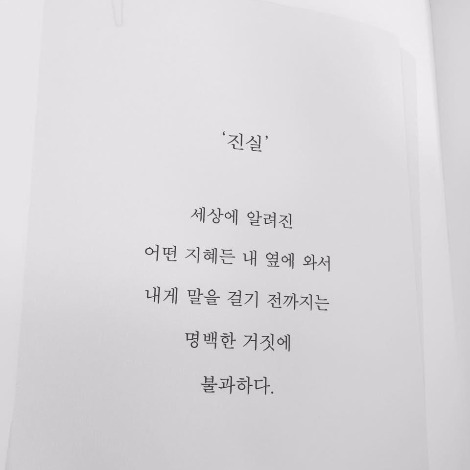 ‘진실’
세상에 알려진
어떤 지혜든 내 옆에 와서
내게 말을 걸기 전까지는
명백한 거짓에
불과하다.